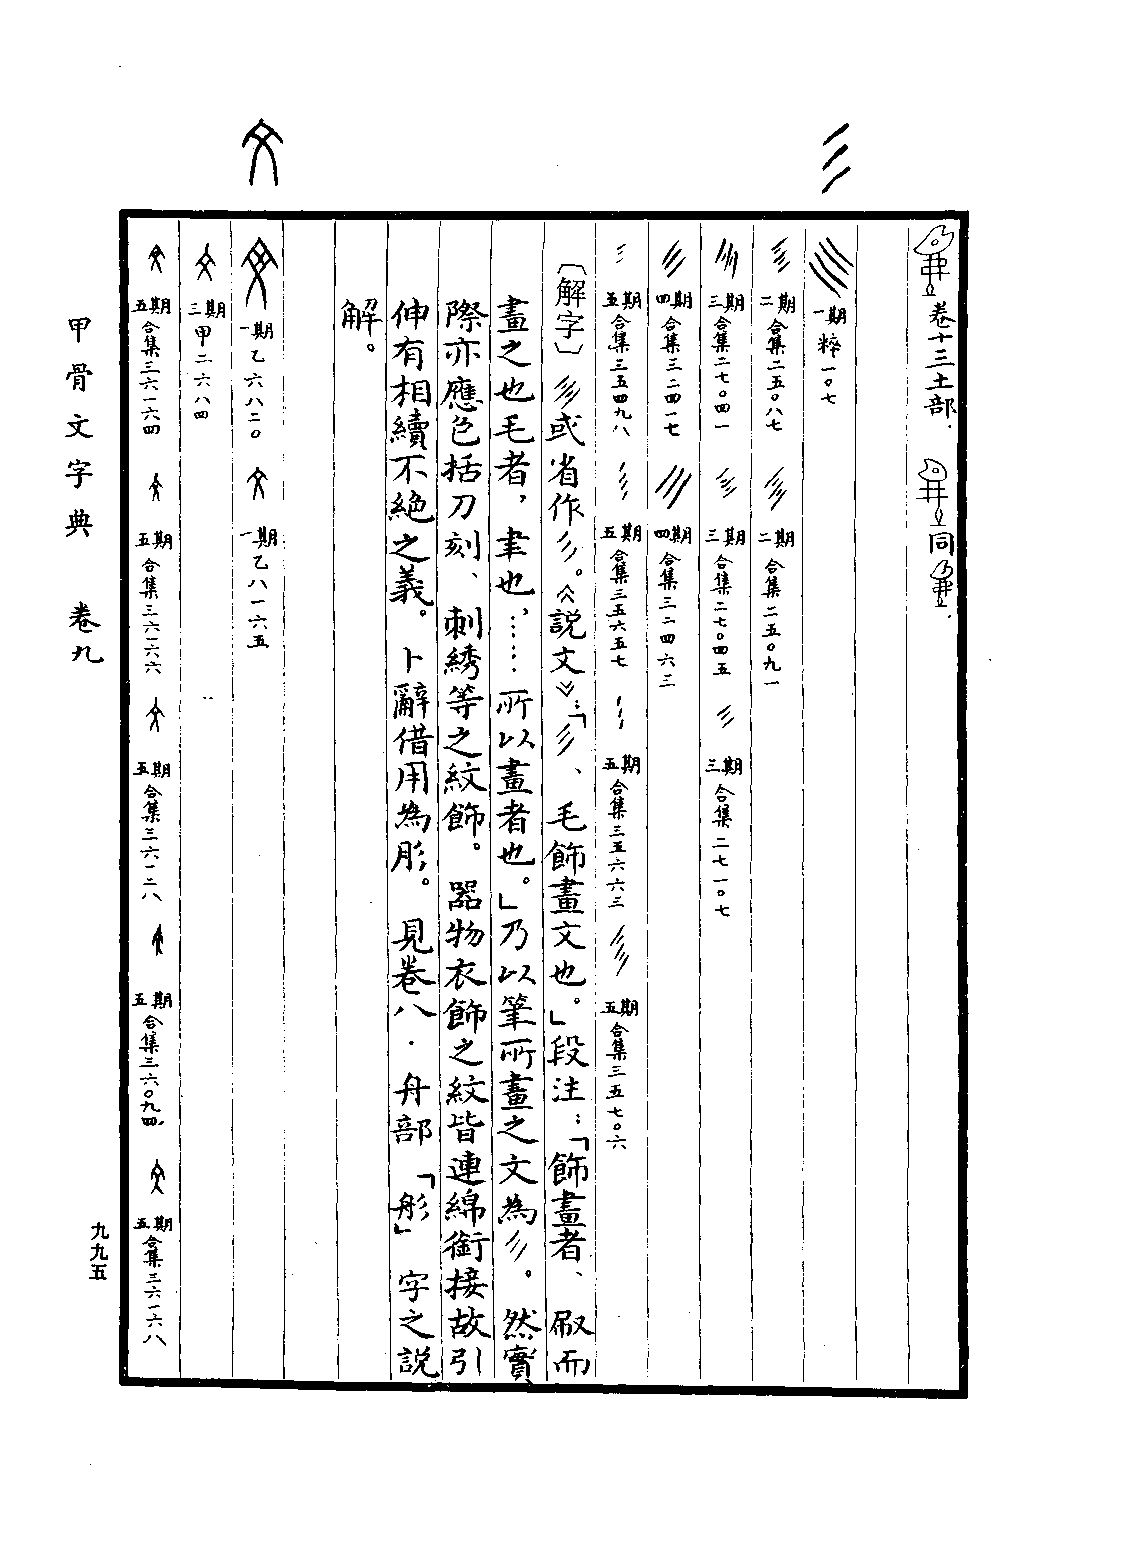 卷十三土部. 同.
一期 粹一〇七
二期 合集二五〇八七 二期 合集二五〇九一
三期 合集二七〇四一 三期 合集二七〇四五 三期 合集二七一〇七
四期 合集三二四一七 四期 合集三二四六三
五期 合集三五四九八 五期 合集三五六五七 五期 合集三五六六三 五期 合集三五七〇六
〔解字〕彡或省作彡。《説文》:「彡、毛飾畫文也。」段注:「飾畫者、㕞而
畫之也毛者，聿也，……所以畫者也。」乃以筆所畫之文為彡。然實
際亦應包括刀刻、刺綉等之紋飾。器物衣飾之紋皆連綿銜接故引
伸有相續不絕之義。卜辭借用為肜。見卷八·舟部「彤」字之説
解。
一期 乙六八二〇 一期 乙八一六五
三期 甲二六八四
五期 合集三六一六四 五期 合集三六一六六 五期 合集三六一二八 五期 合集三六〇九四 五期 合集三六一六八
甲骨文字典 卷九
九九五